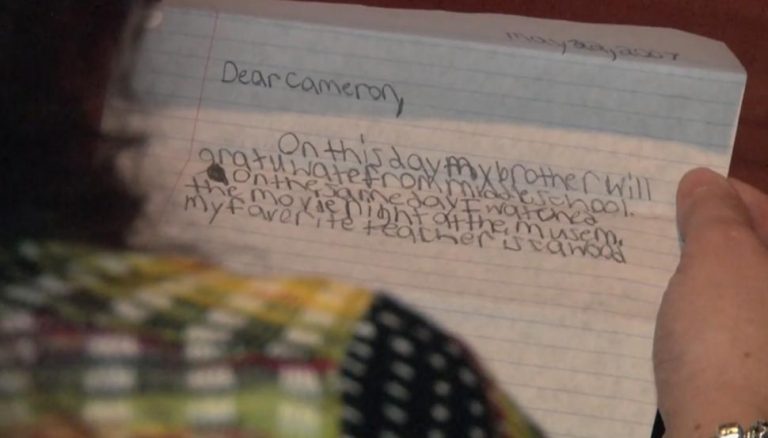 may 2007
Dear cameron,
On this day my brother will
gratuwate from middle school.
on the same day I watched
the movie night at the musem.
my faverite teacher is cawood